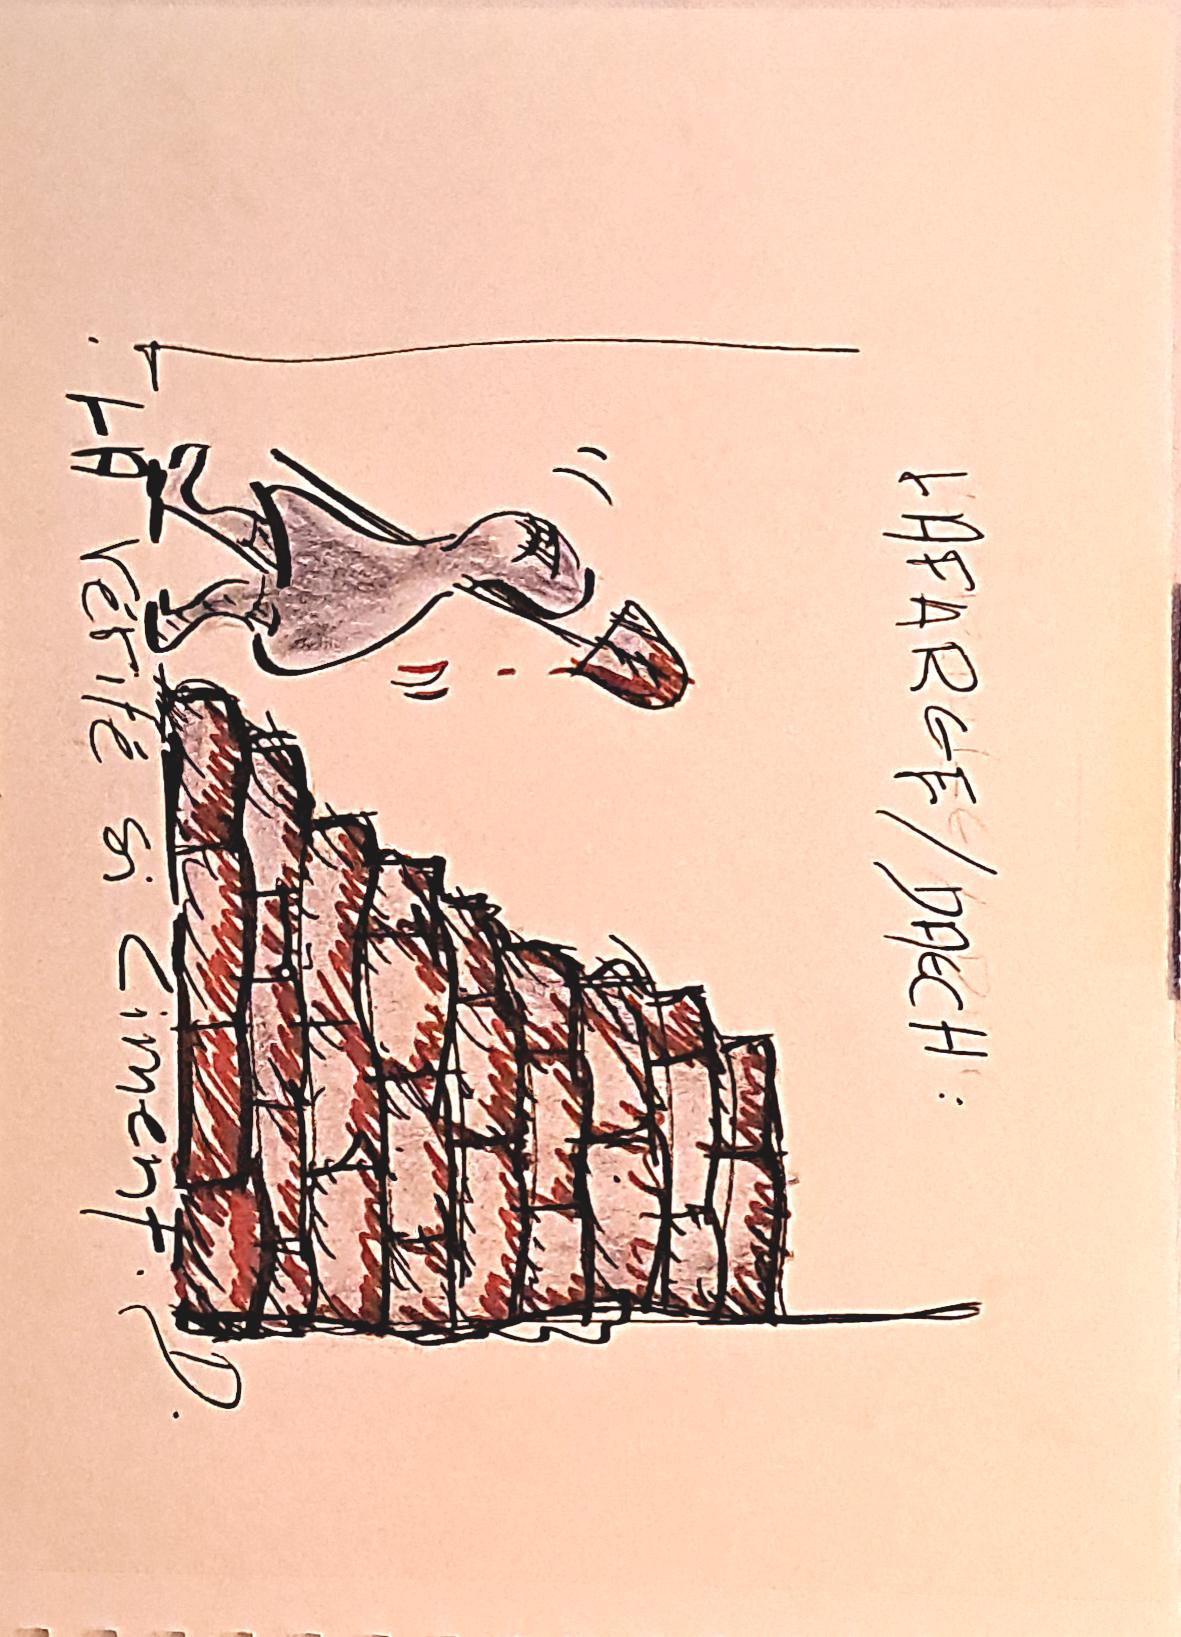 LAFARGE/DAECH :
LA Vérité si Ciment.